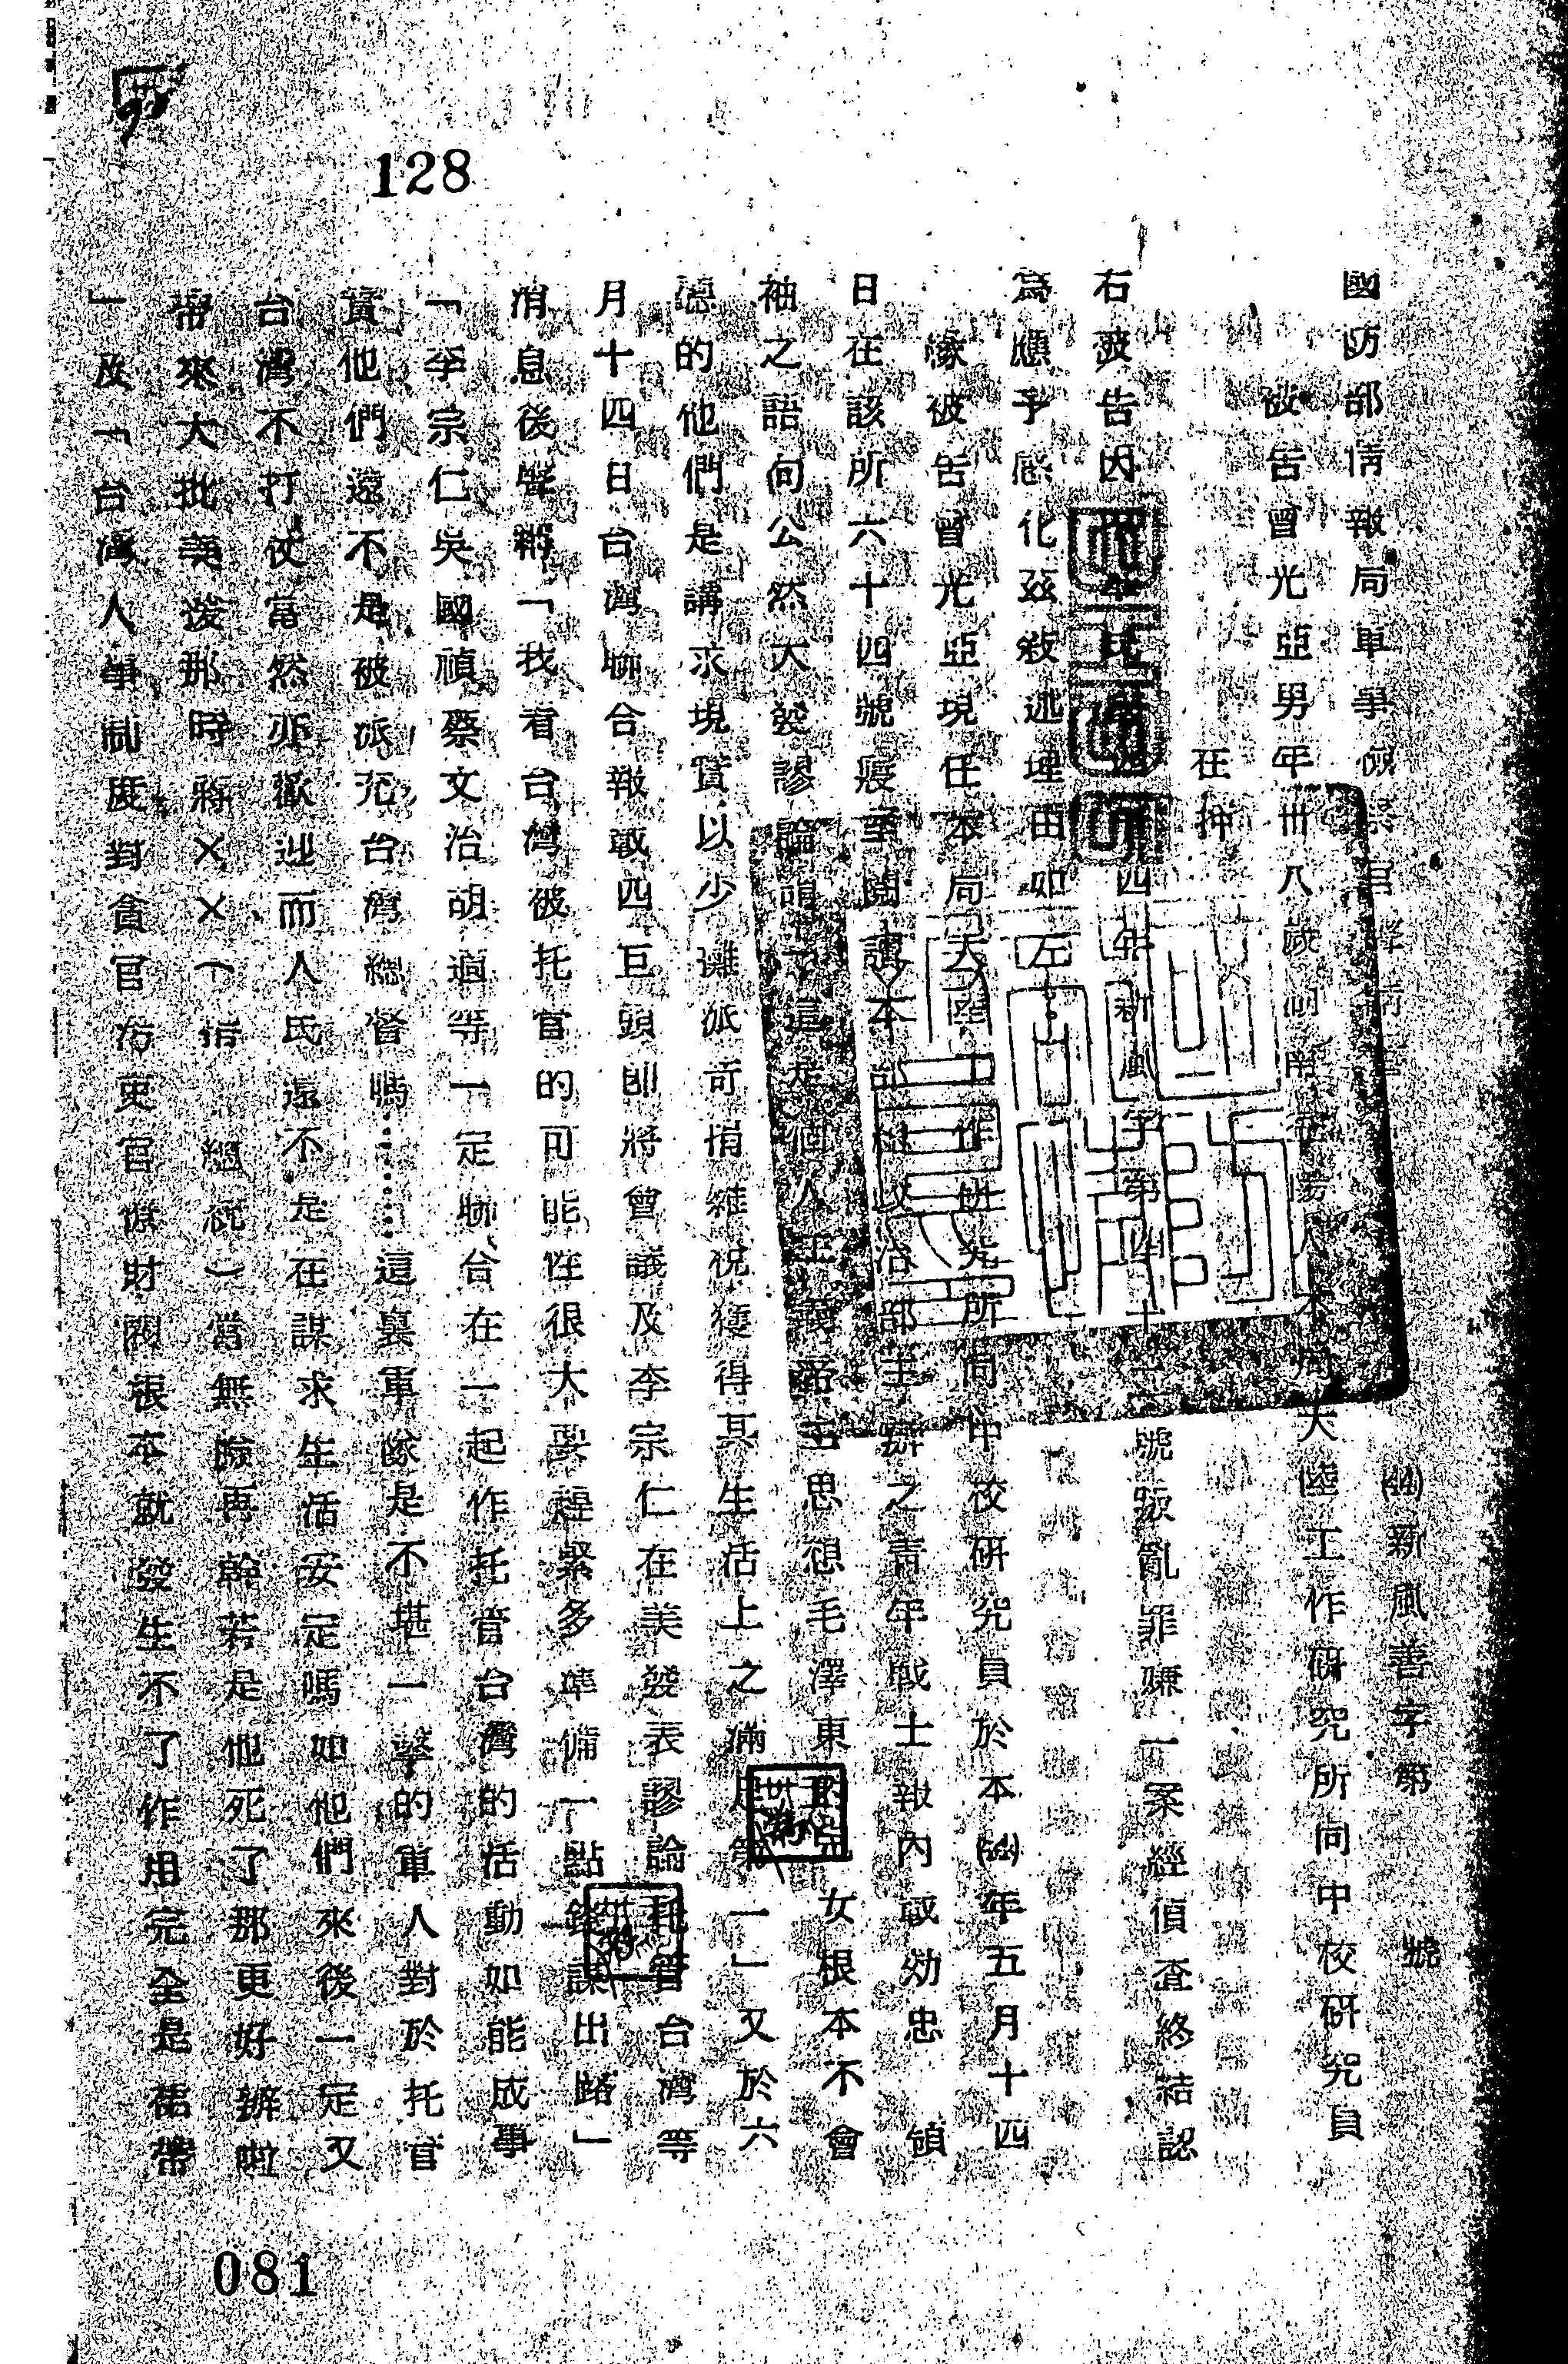 128
國防部情報局軍事檢察官
(44)新風善字第 號
被告曾光亞男年卅八歲 人本局大陸工作研究所同中校研究員
在押
右被告因 四年新風字第 十二號叛亂罪嫌一案經偵查終結認
為應予感化茲敍述理由如左:
緣被告曾光亞現任本局大陸工作研究所同中校研究員於本(44)年五月十四
日在該所六十四號寢室閱讀本部政治部主辦之青年戰士報內載効忠 領
袖之語句公然大發謬論謂「這是個人主義帝王思想毛澤東的兒女根本不會
的他們是講求現實以少攤派苛捐雜稅獲得其生活上之滿足第一」又於六
月十四日台灣聯合報載四巨頭即將會議及李宗仁在美發表謬論托管台灣等
消息後聲稱「我看台灣被托管的可能性很大要趕緊多準備一點錢謀出路」
「李宗仁吳國禎蔡文治胡適等一定聯合在一起作托管台灣的活動如能成事
實他們還不是被派充台灣總督嗎……這裏軍隊是不堪一擊的軍人對於托管
台灣不打仗當然亦歡迎而人民還不是在謀求生活安定嗎如他們來後一定又
帶來大批美援那時蔣××(指 總統)當無臉再幹若是他死了那更好辦啦
」及「台灣人事制度對貪官污吏官僚財閥根本就發生不了作用完全是裙帶
081